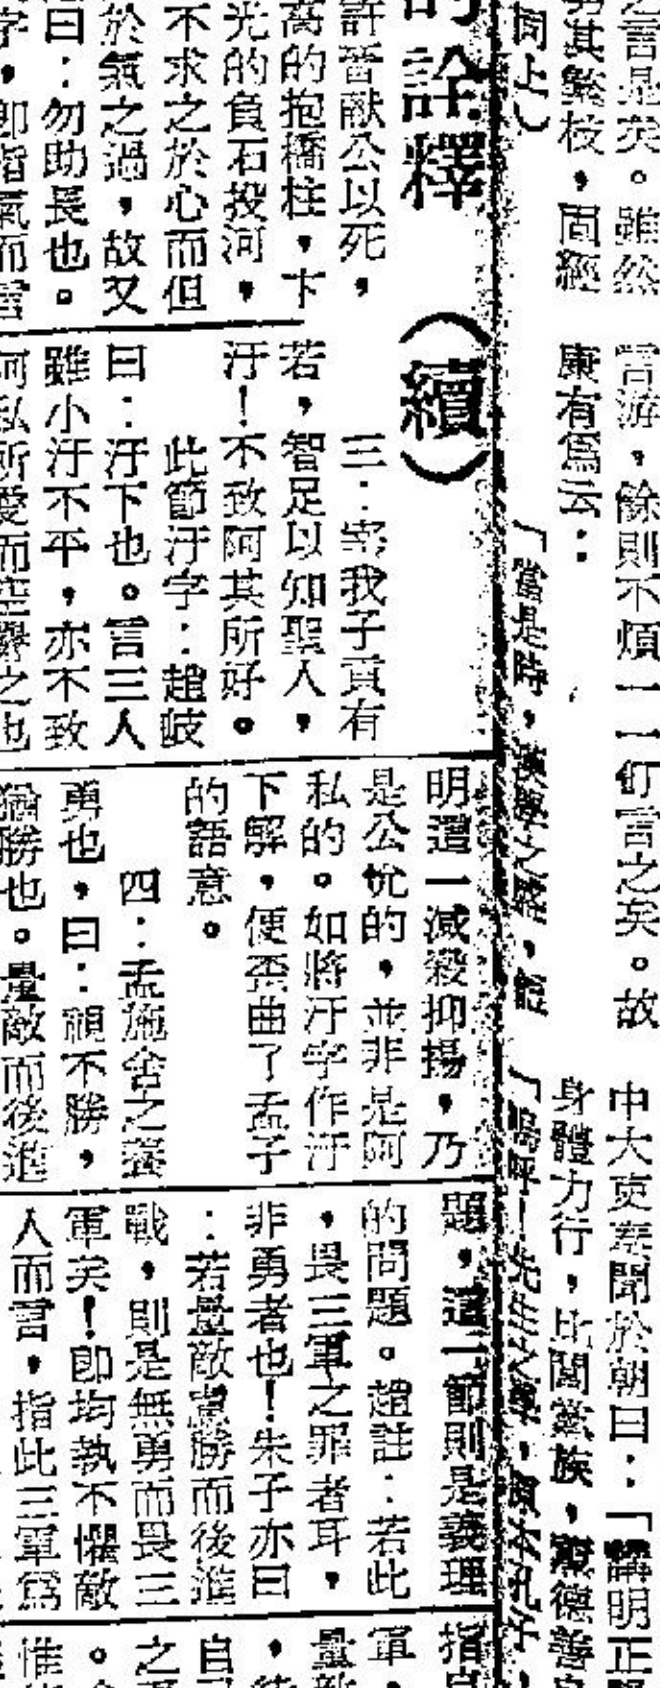 之言是矣。雖然
言游，餘則不煩一一訂言之矣。故
中大吏薦聞於朝曰：「講明正
其繁枝，固經
康有爲云：
身體力行，比閭黨族，德善
同上）
「當是時，漢學之
「嗚呼！先生之，本孔子，
的詮釋（續）
許晉獻公以死，
高的抱橋柱，卞
光的負石投河，
不求之於心而但
於氣之過，故又
曰：勿助長也。
字，卽指氣而言
三：宰我子貢有
若，智足以知聖人，
汙！不致阿其所好。
此節汙字：趙岐
曰：汙下也。言三人
雖小汙不平，亦不致
阿私所愛而空譽之也
明這一減殺抑揚，乃
是公允的，並非是阿
私的。如將汙字作汙
下解，便歪曲了孟子
的語意。
四：孟施舍之養
勇也，曰：視不勝，
猶勝也。量敵而後進
題，這一節則是義理
的問題。趙註：若此
，畏三軍之罪者耳，
非勇者也！朱子亦曰
：若量敵慮勝而後進
戰，則是無勇而畏三
軍矣！卽均執不懼敵
人而言，指此三軍爲
指
軍，
量敵
，
自
之
。
惟